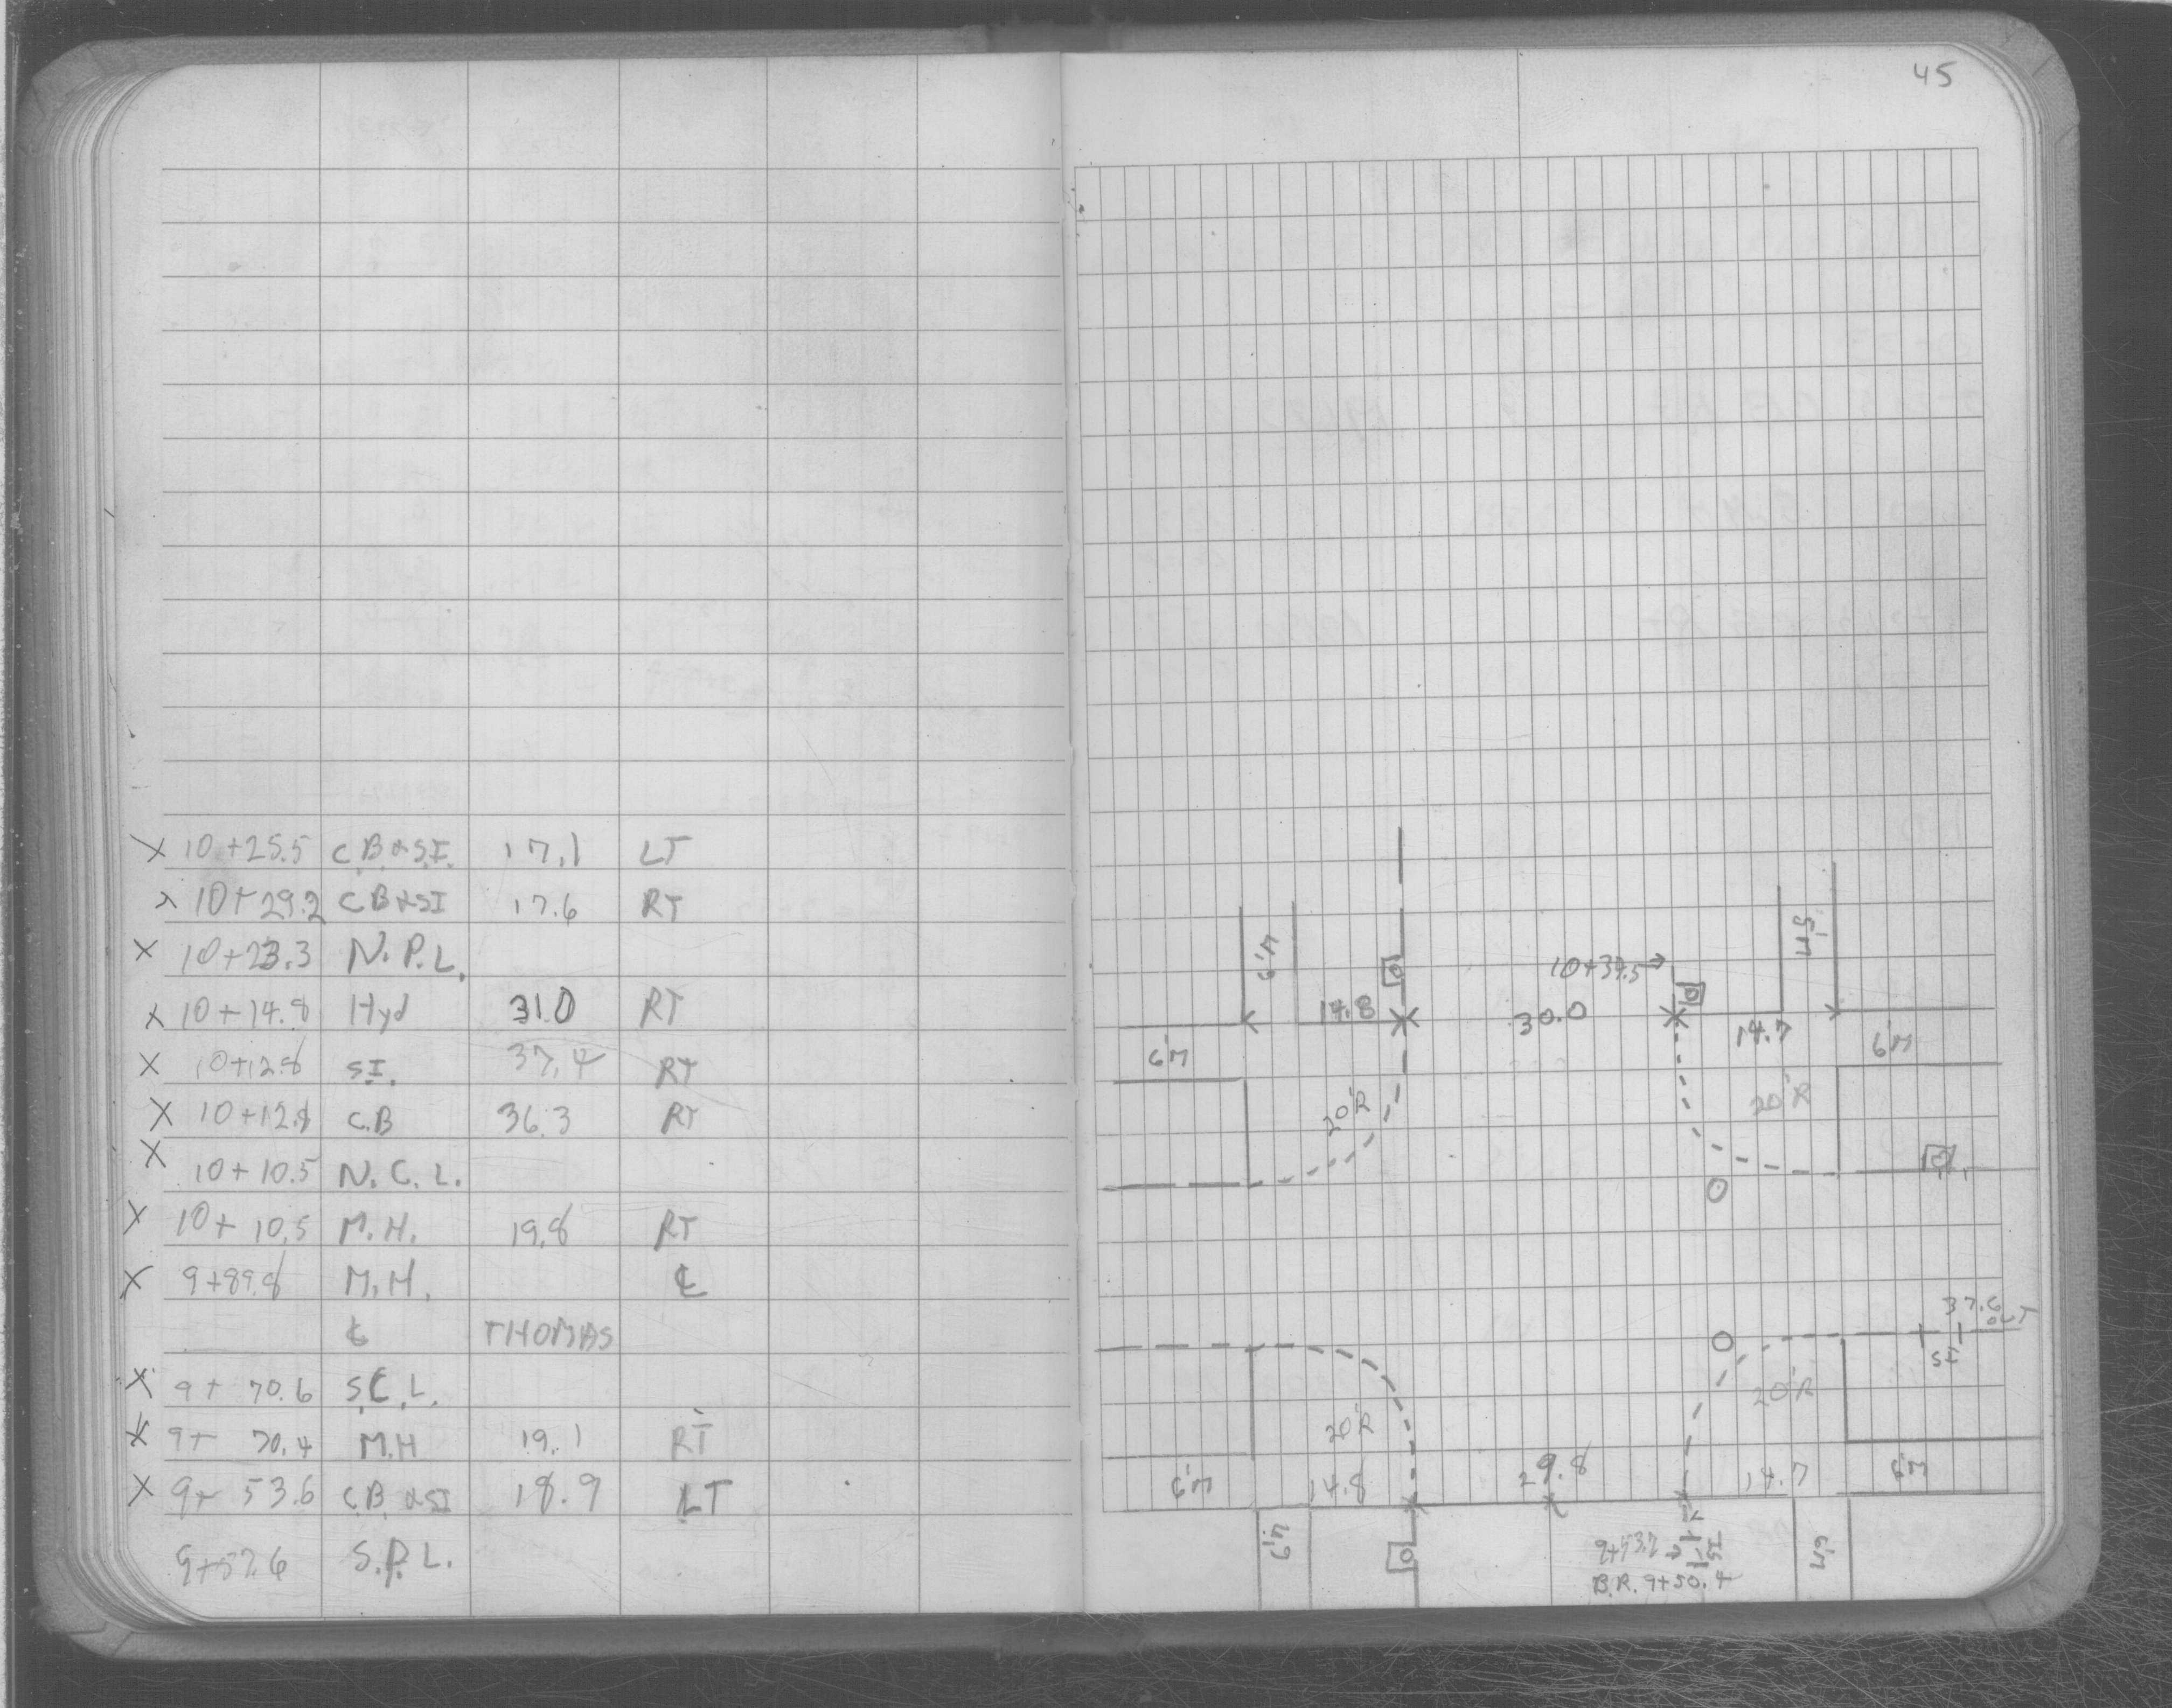 45
X 10+25.5 C.B.&S.I. 17.1 LT
X 10+29.2 CB&SI 17.6 RT
X 10+23.3 N.P.L.
X 10+14.8 Hyd 31.0 RT
X 10+12.8 S.I. 37.4 RT
X 10+12.8 C.B 36.3 RT
X 10+10.5 N.C.L.
X 10+10.5 M.H. 19.8 RT
X 9+89.8 M.H. ℄
℄ THOMAS
X 9+70.6 S.C.L.
X 9+70.4 M.H 19.1 RT
X 9+53.6 C.B.&SI 18.9 LT
9+52.6 S.P.L.
6'M 5'M
10+39.5→
14.8 30.0 14.7
6'M 6'M
20'R 20'R
37.6
OUT
SI
20'R 20'R
6'M 14.8 29.8 14.7 6'M
6'M 9+53.2→ SI 6'M
B.R. 9+50.4